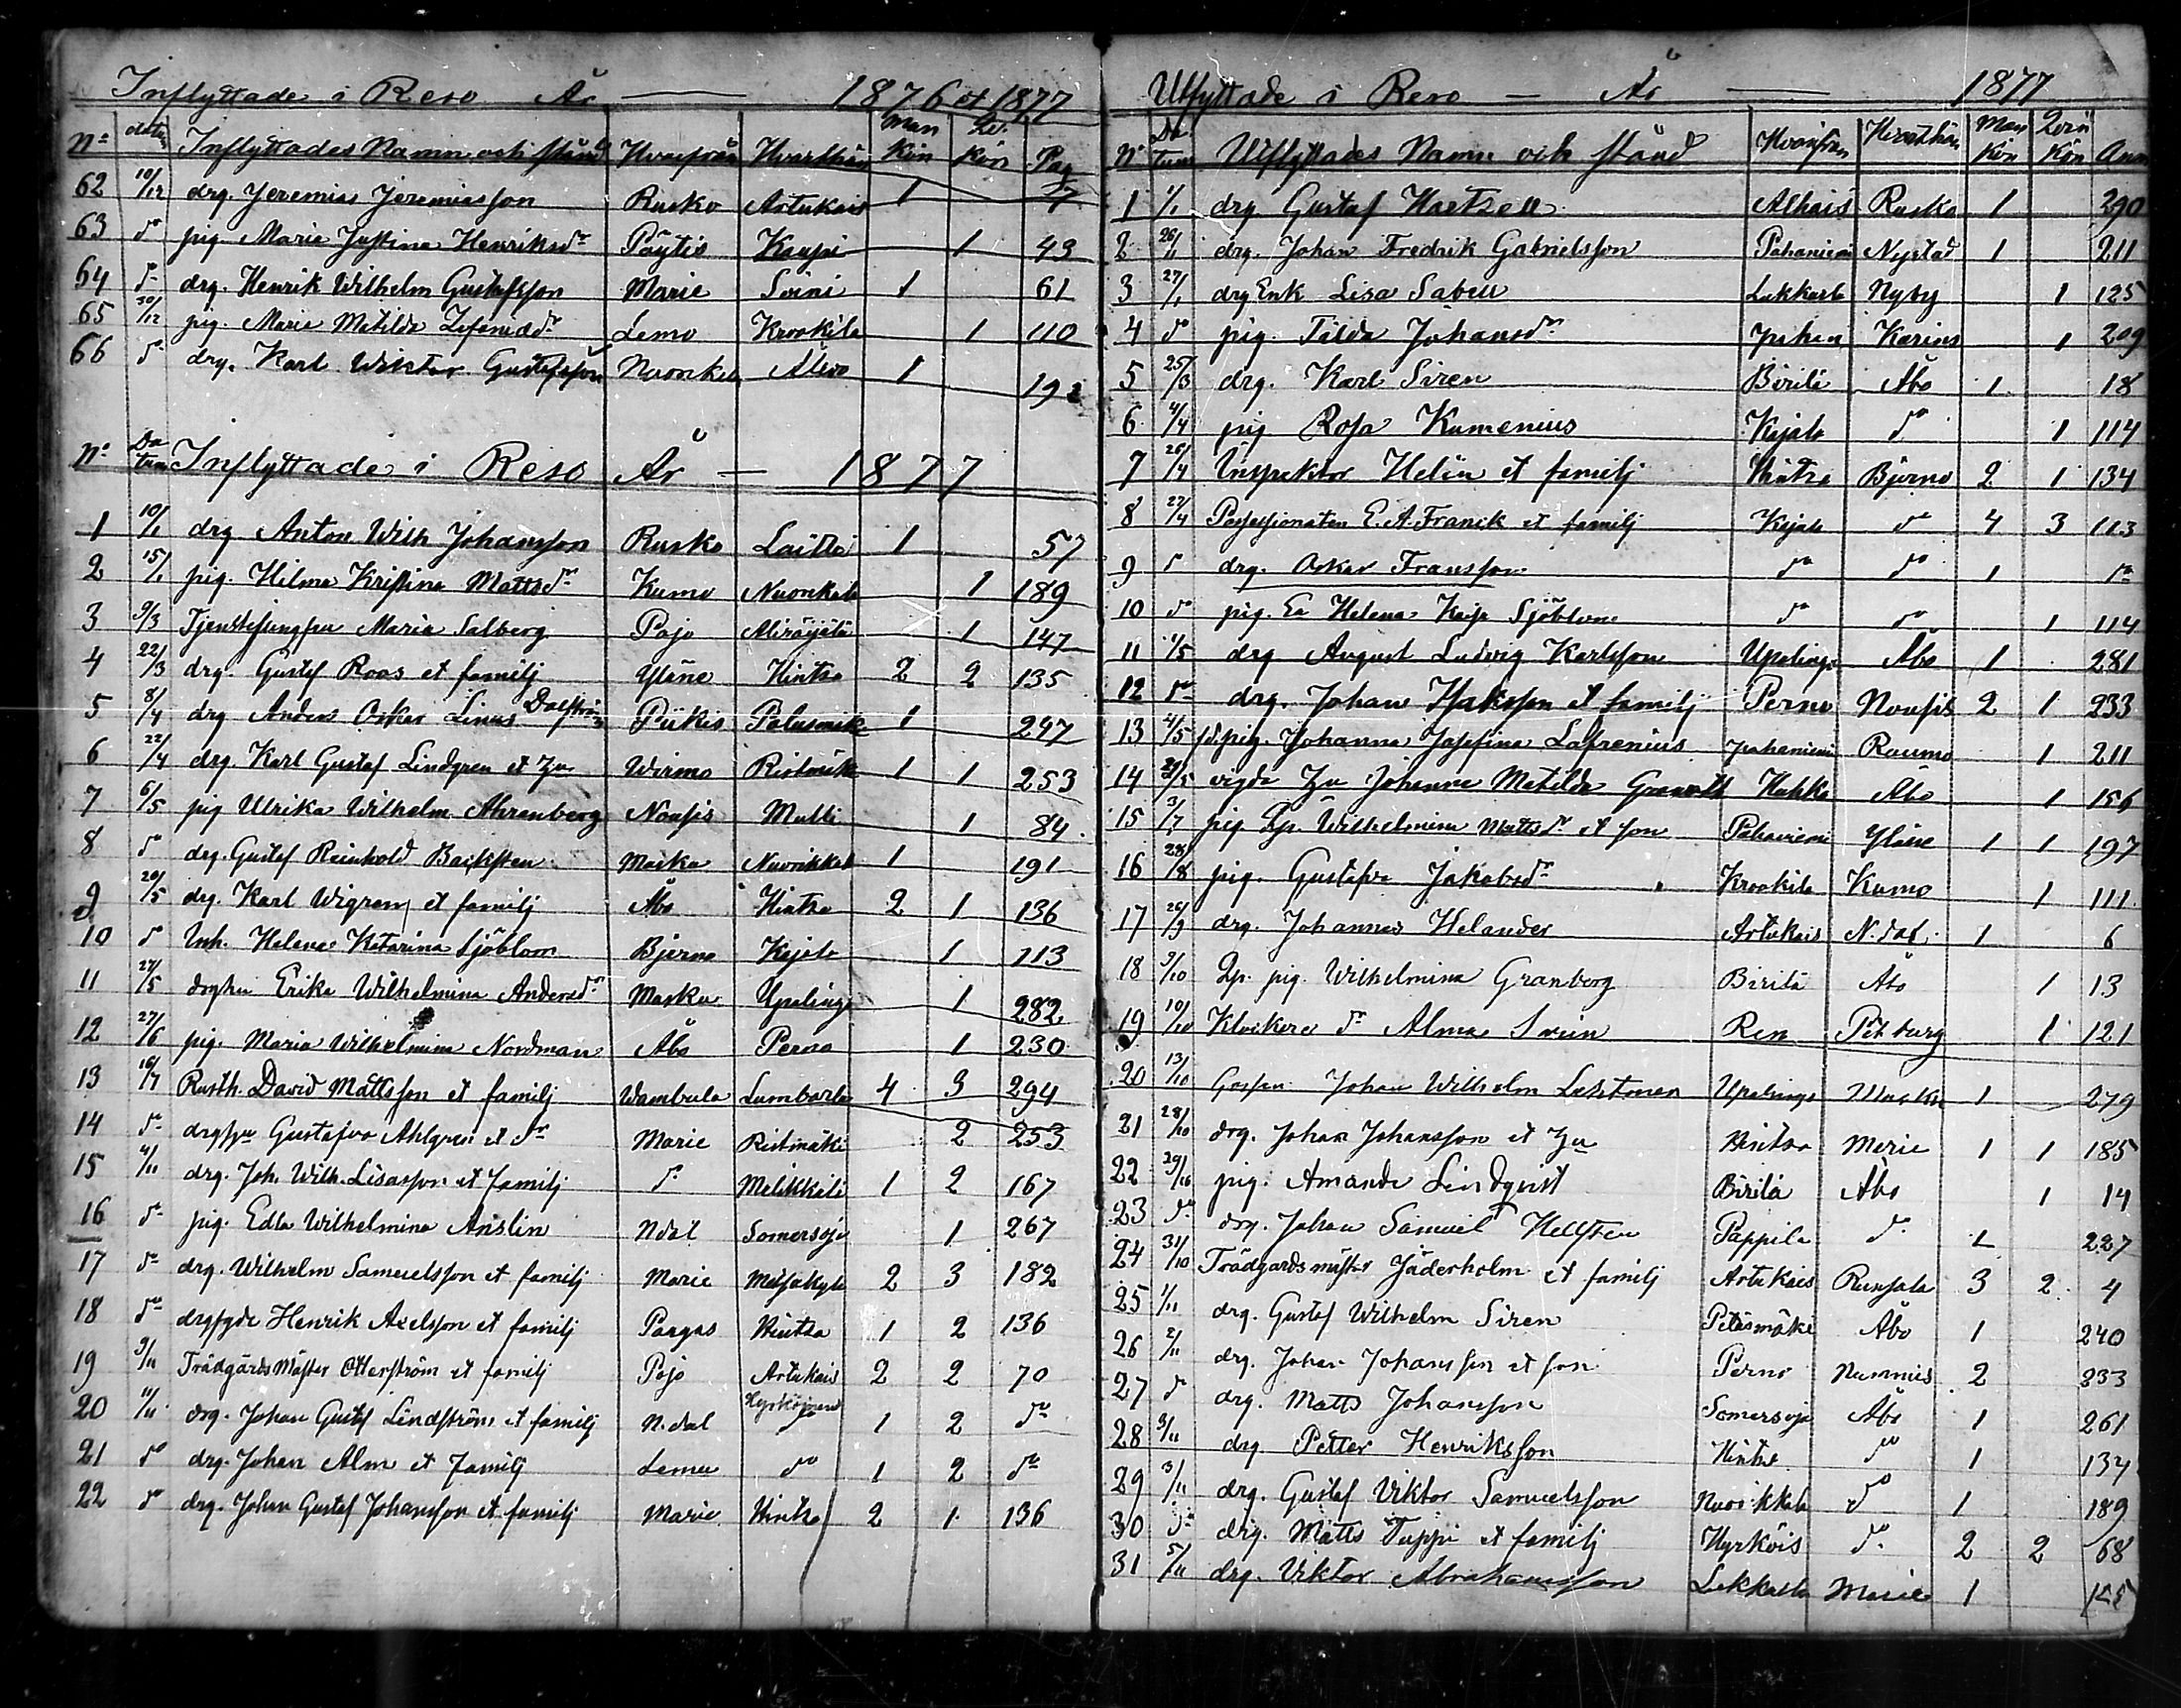 Inflyttade i Reso År — 1876 et 1877
No datum Inflyttades Namn och stånd Hvarifrån Hvarthän Man Kön Qv. Kön Pag
62 10/12 drg. Jeremias Jeremiasson Rusko Artukais 1 7
63 do pig. Maria Justina Henriksdr Pöytis Kaupi 1 43
64 do drg. Henrik Wilhelm Gustafsson Marie Soini 1 61
65 30/12 pig. Maria Matilda Lemo Krookila 1 110
66 do drg. Karl Wiktor Gustafsson 1 192
No Datum Inflyttade i Reso År — 1877
1 10/1 drg Anton Wilh Johansson Rusko Laitti 1 57
2 15/1 pig. Hilma Kristina Mattsdr Kumo Nuorikkala 1 189
3 9/3 Tjenstejungfru Maria Salberg Pojo 1 147
4 22/3 drg. Gustaf Roos et familj Yläne Hintsa 2 2 135
5 8/4 drg Anders Oskar Linus Dalström Piikis 1 247
6 22/4 drg. Karl Gustaf Lindgren et hu Wirmo Ristimäki 1 1 253
7 6/5 pig Ulrika Wilhelm. Ahrenberg Nousis Mulli 1 84
8 do drg. Gustaf Reinhold Backsten Masku Nuorikkala 1 191
9 20/5 drg. Karl Wigren et familj Åbo Hintsa 2 1 136
10 do Inh. Helena Katarina Sjöblom Bjerno Kajala 1 113
11 27/5 drghu Erika Wilhelmina Andersdr Masku Upalinga 1 282
12 27/6 pig. Maria Wilhelmina Nordman Åbo Perno 1 230
13 16/7 Rusth. David Mattsson et familj Wambula Lumbarla 4 3 294
14 do Gustafva Ahlgren et dr Marie Ristimäki 2 253
15 4/11 drg. Joh. Wilh. Lisasson et familj do Melikkälä 1 2 167
16 do pig. Edla Wilhelmina Anslin Ndal Somersoja 1 267
17 do drg. Wilhelm Samuelsson et familj Marie Metsäkylä 2 3 182
18 do Henrik Axelsson et familj Pargas Hintsa 1 2 136
19 9/11 Trädgårds Mäster Otterström et familj Pojo Artukais 2 2 70
20 11/11 drg. Johan Gustaf Lindström et familj N.dal 1 2 do
21 do drg. Johan Alm et familj Lemu do 1 2 do
22 do drg. Johan Gustaf Johansson et familj Marie Hintsa 2 1 136
Utflyttade i Reso — År — 1877
No Datum Utflyttades Namn och stånd Hvarifrån Hvarthän Man Kön Qvin Kön
1 1/1 drg. Gustaf Alhais Rusko 1 290
2 26/1 drg. Johan Fredrik Gabrielsson Pahaniemi Nystad 1 211
3 27/1 drg Enk Lisa Sabell Lukkarla Nyby 1 125
4 do pig. Tilda Johansdr Karins 1 209
5 25/3 drg. Karl Siren Birilä Åbo 1 18
6 4/4 pig Rosa Kumenius Kajala do 1 114
7 26/4 Inspektor Helin et familj Hintsa Bjerno 2 1 134
8 27/4 Possessionaten E. A. Franck et familj Kajala do 4 3 113
9 do drg. Oskar Fransson do do 1 do
10 do pig. Ea Helena Kajs Sjöblom do do 1 114
11 1/5 drg August Ludvig Karlsson Upalinga Åbo 1 281
12 do drg. Johan Isaksson et familj Perno Nousis 2 1 233
13 4/5 pig. Johanna Josefina Lafrenius Pahaniemi Raumo 1 211
14 vigda hu Johanna Matilda Granroth Hahka Åbo 1 156
15 3/7 pig Qp. Wilhelmina Mattsdr et son Pahaniemi Yläne 1 1 197
16 28/8 pig. Gustafva Jakobsdr Krookila Kumo 1 111
17 26/9 drg. Johannes Helander Artukais N.dal 1 6
18 9/10 Qp. pig. Wilhelmina Granberg Birilä Åbo 1 13
19 10/10 Klockare dr Alma Sven Reso Petburg 1 121
20 13/10 Gossen Johan Wilhelm Upalinga Masku 1 279
21 28/10 drg. Johan Johansson et hu Hintsa Merie 1 1 185
22 29/10 pig. Amanda Lindqvist Birilä Åbo 1 14
23 do drg. Johan Samuel Hellsten Pappila do 1 227
24 31/10 Trädgårdsmäster Jäderholm et familj Artukais Runsala 3 2 4
25 1/11 drg. Gustaf Wilhelm Siren Petäsmäki Åbo 1 240
26 2/11 drg. Johan Johansson et son Perno Nummis 2 233
27 do drg. Matts Johansson Somersoja Åbo 1 261
28 3/11 drg. Petter Henriksson Hintsa do 1 134
29 3/11 drg. Gustaf Viktor Samuelsson Nuorikkala do 1 189
30 do drg. Matts Tuppi et familj Hyrköis do 2 2 68
31 5/11 drg. Viktor Abrahamsson Lukkarla Masie 1 125